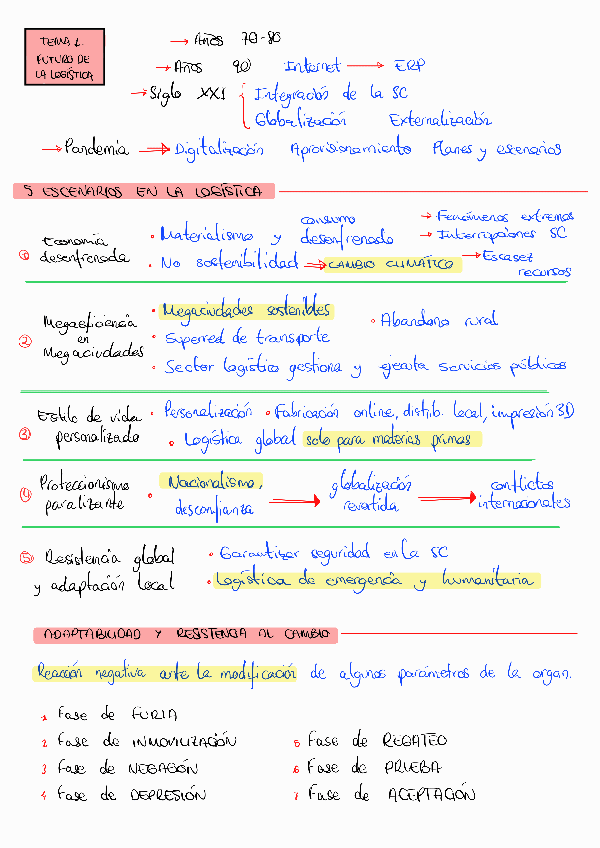 TEMA 1.
FUTURO DE
LA LOGÍSTICA
→ Años 70-80
→ Años 90 Internet → ERP
→ Siglo XXI { Integración de la SC
Globalización Externalización
→ Pandemia → Digitalización Aprovisionamiento Planes y escenarios
5 ESCENARIOS EN LA LOGÍSTICA
① Economía desenfrenada
• Materialismo y consumo desenfrenado
• No sostenibilidad → CAMBIO CLIMÁTICO
→ Fenómenos extremos
→ Interrupciones SC
→ Escasez
recursos
② Megaeficiencia
en
Megaciudades
• Megaciudades sostenibles
• Abandono rural
• Superred de transporte
• Sector logístico gestiona y ejecuta servicios públicos
③ Estilo de vida
personalizado
• Personalización • Fabricación online, distrib. local, impresión 3D
• Logística global solo para materias primas
④ Proteccionismo
paralizante
• Nacionalismo,
desconfianza → globalización
revertida → conflictos
internacionales
⑤ Resistencia global
y adaptación local
• Garantizar seguridad en la SC
• Logística de emergencia y humanitaria
ADAPTABILIDAD Y RESISTENCIA AL CAMBIO
Reacción negativa ante la modificación de algunos parámetros de la organ.
1 Fase de FURIA
2 Fase de INMOVILIZACIÓN
3 Fase de NEGACIÓN
4 Fase de DEPRESIÓN
5 Fase de REGATEO
6 Fase de PRUEBA
7 Fase de ACEPTACIÓN